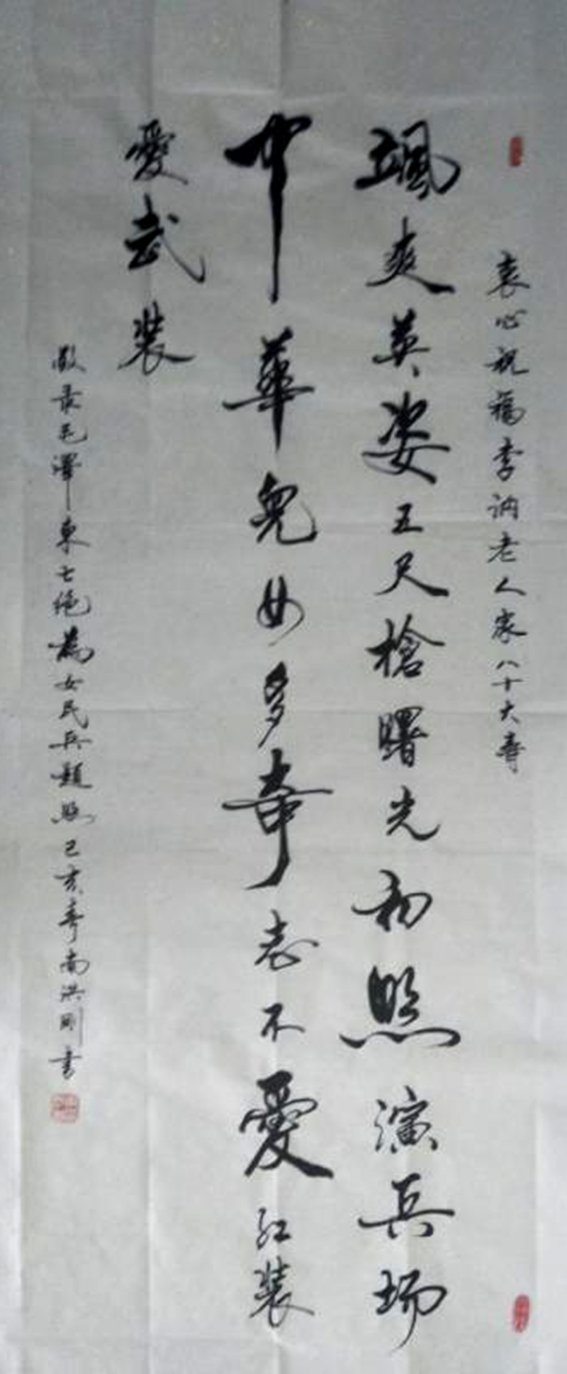 衷心祝福李讷老人家八十大寿
颯爽英姿五尺槍曙光初照演兵场
中華兒女多奇志不愛红装
愛武装
敬录毛澤東七绝為女民兵題照己亥春南洪刚书